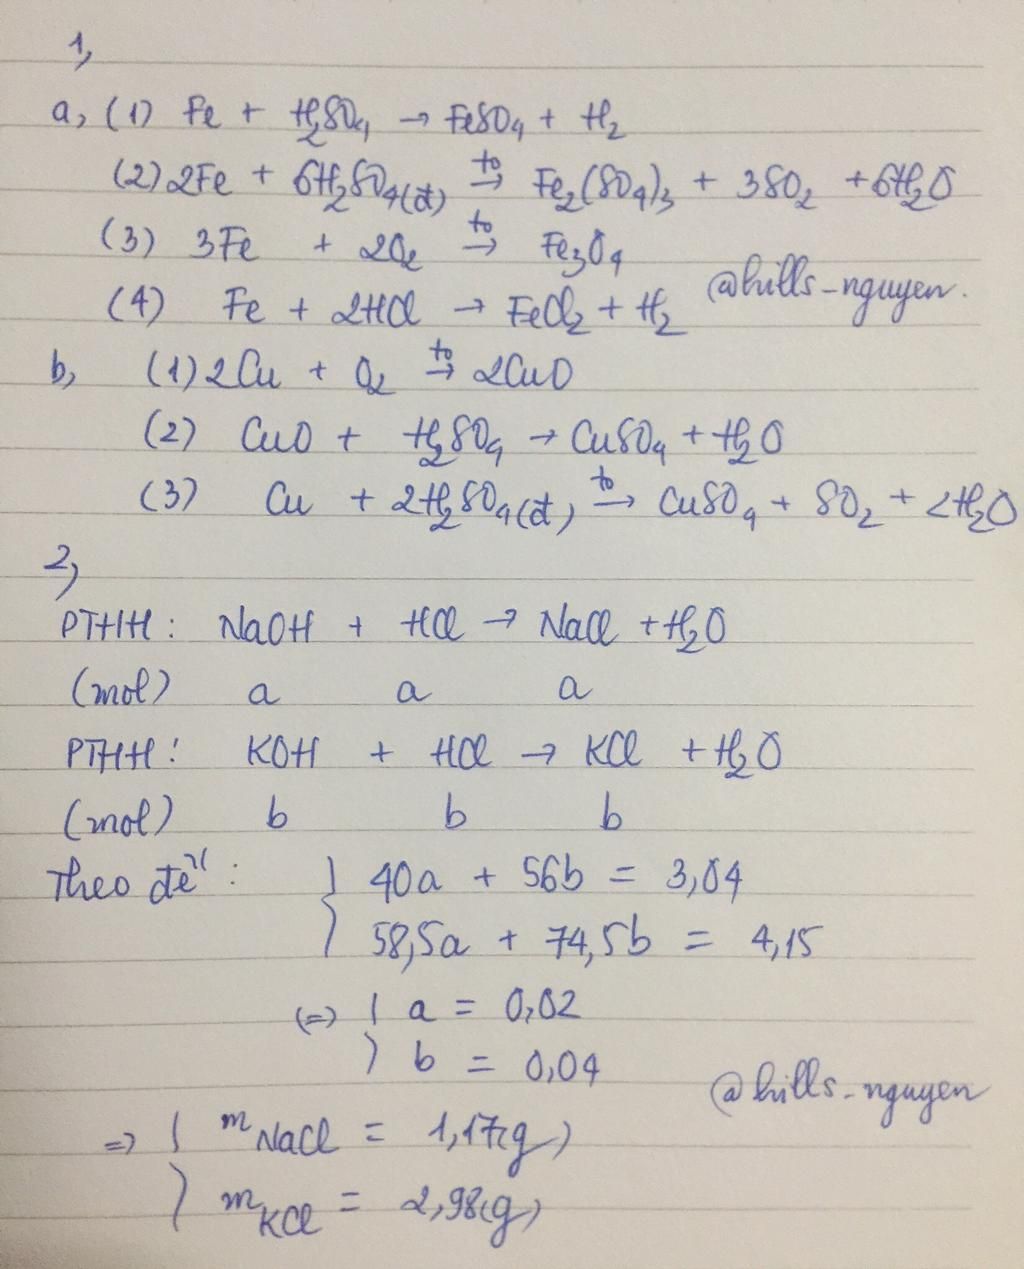 1,
a, (1) Fe + H₂SO₄ → FeSO₄ + H₂
(2) 2Fe + 6H₂SO₄(đ) t° → Fe₂(SO₄)₃ + 3SO₂ + 6H₂O
(3) 3Fe + 2O₂ t° → Fe₃O₄
(4) Fe + 2HCl → FeCl₂ + H₂ @hills_nguyen.
b, (1) 2Cu + O₂ t° → 2CuO
(2) CuO + H₂SO₄ → CuSO₄ + H₂O
(3) Cu + 2H₂SO₄(đ) t° → CuSO₄ + SO₂ + 2H₂O
2,
PTHH: NaOH + HCl → NaCl + H₂O
(mol) a a a
PTHH: KOH + HCl → KCl + H₂O
(mol) b b b
Theo đề: { 40a + 56b = 3,04
58,5a + 74,5b = 4,15
(=> { a = 0,02
b = 0,04
@hills_nguyen
=> { m NaCl = 1,17(g)
m KCl = 2,98(g)